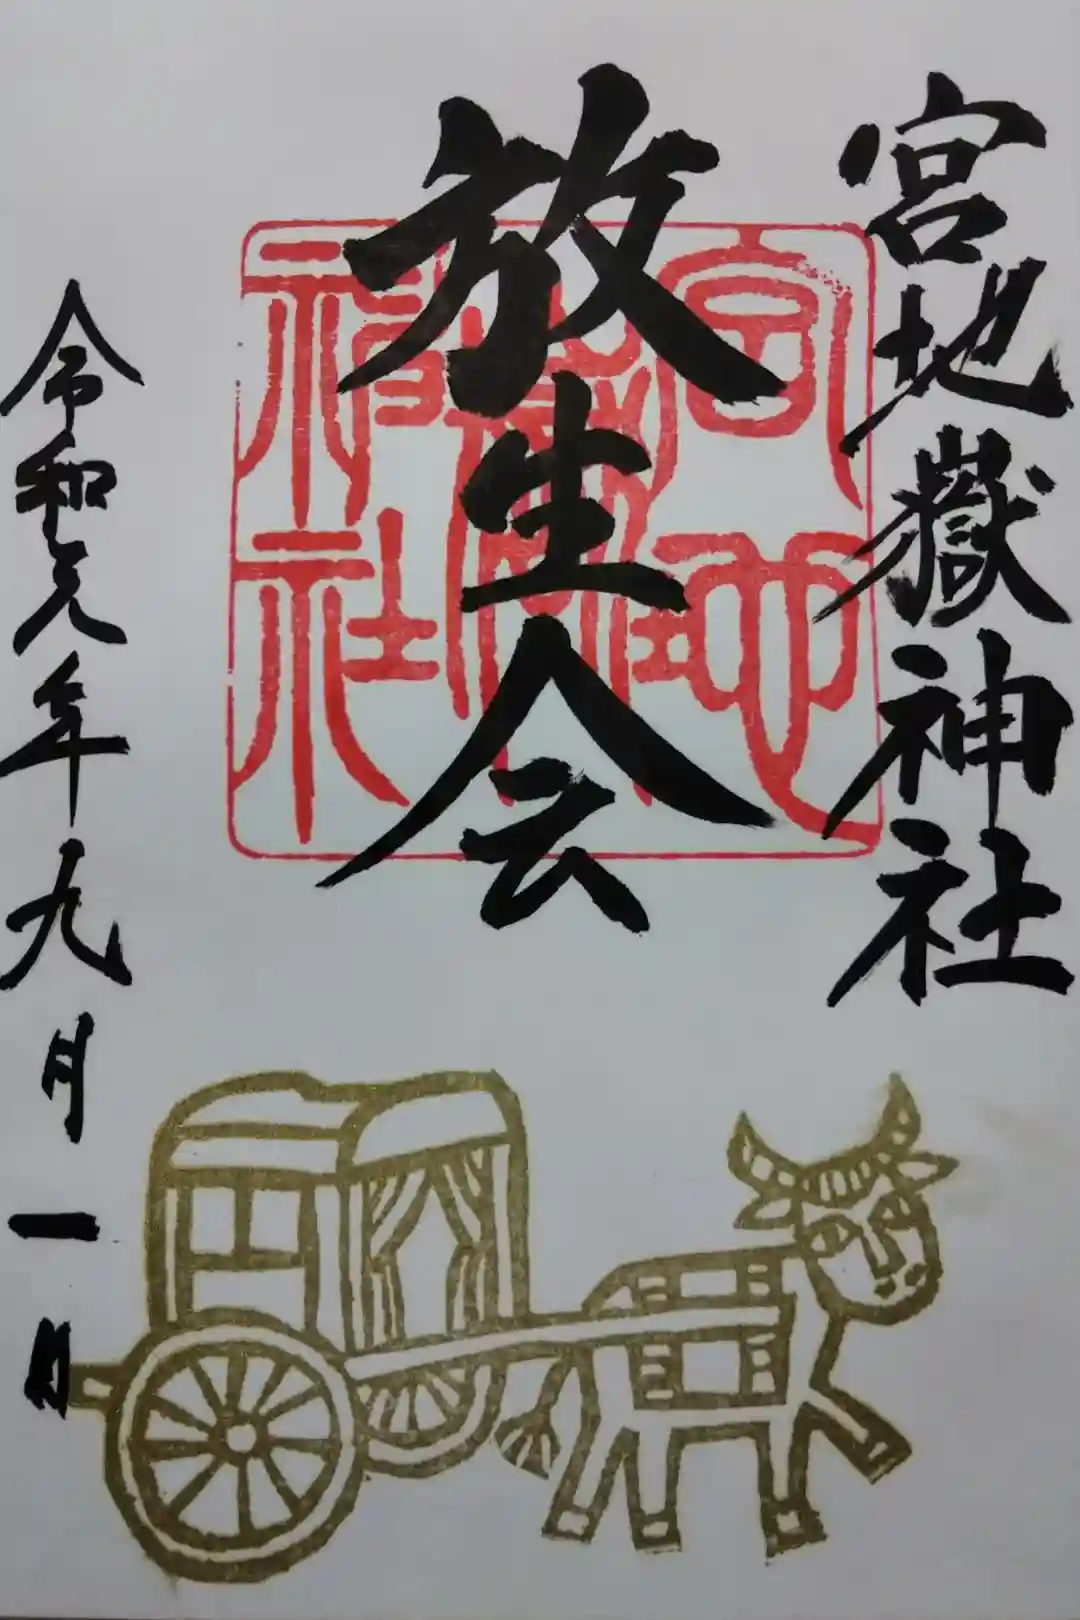 宮地嶽神社
放生会
宮地嶽神社
令和元年九月一日